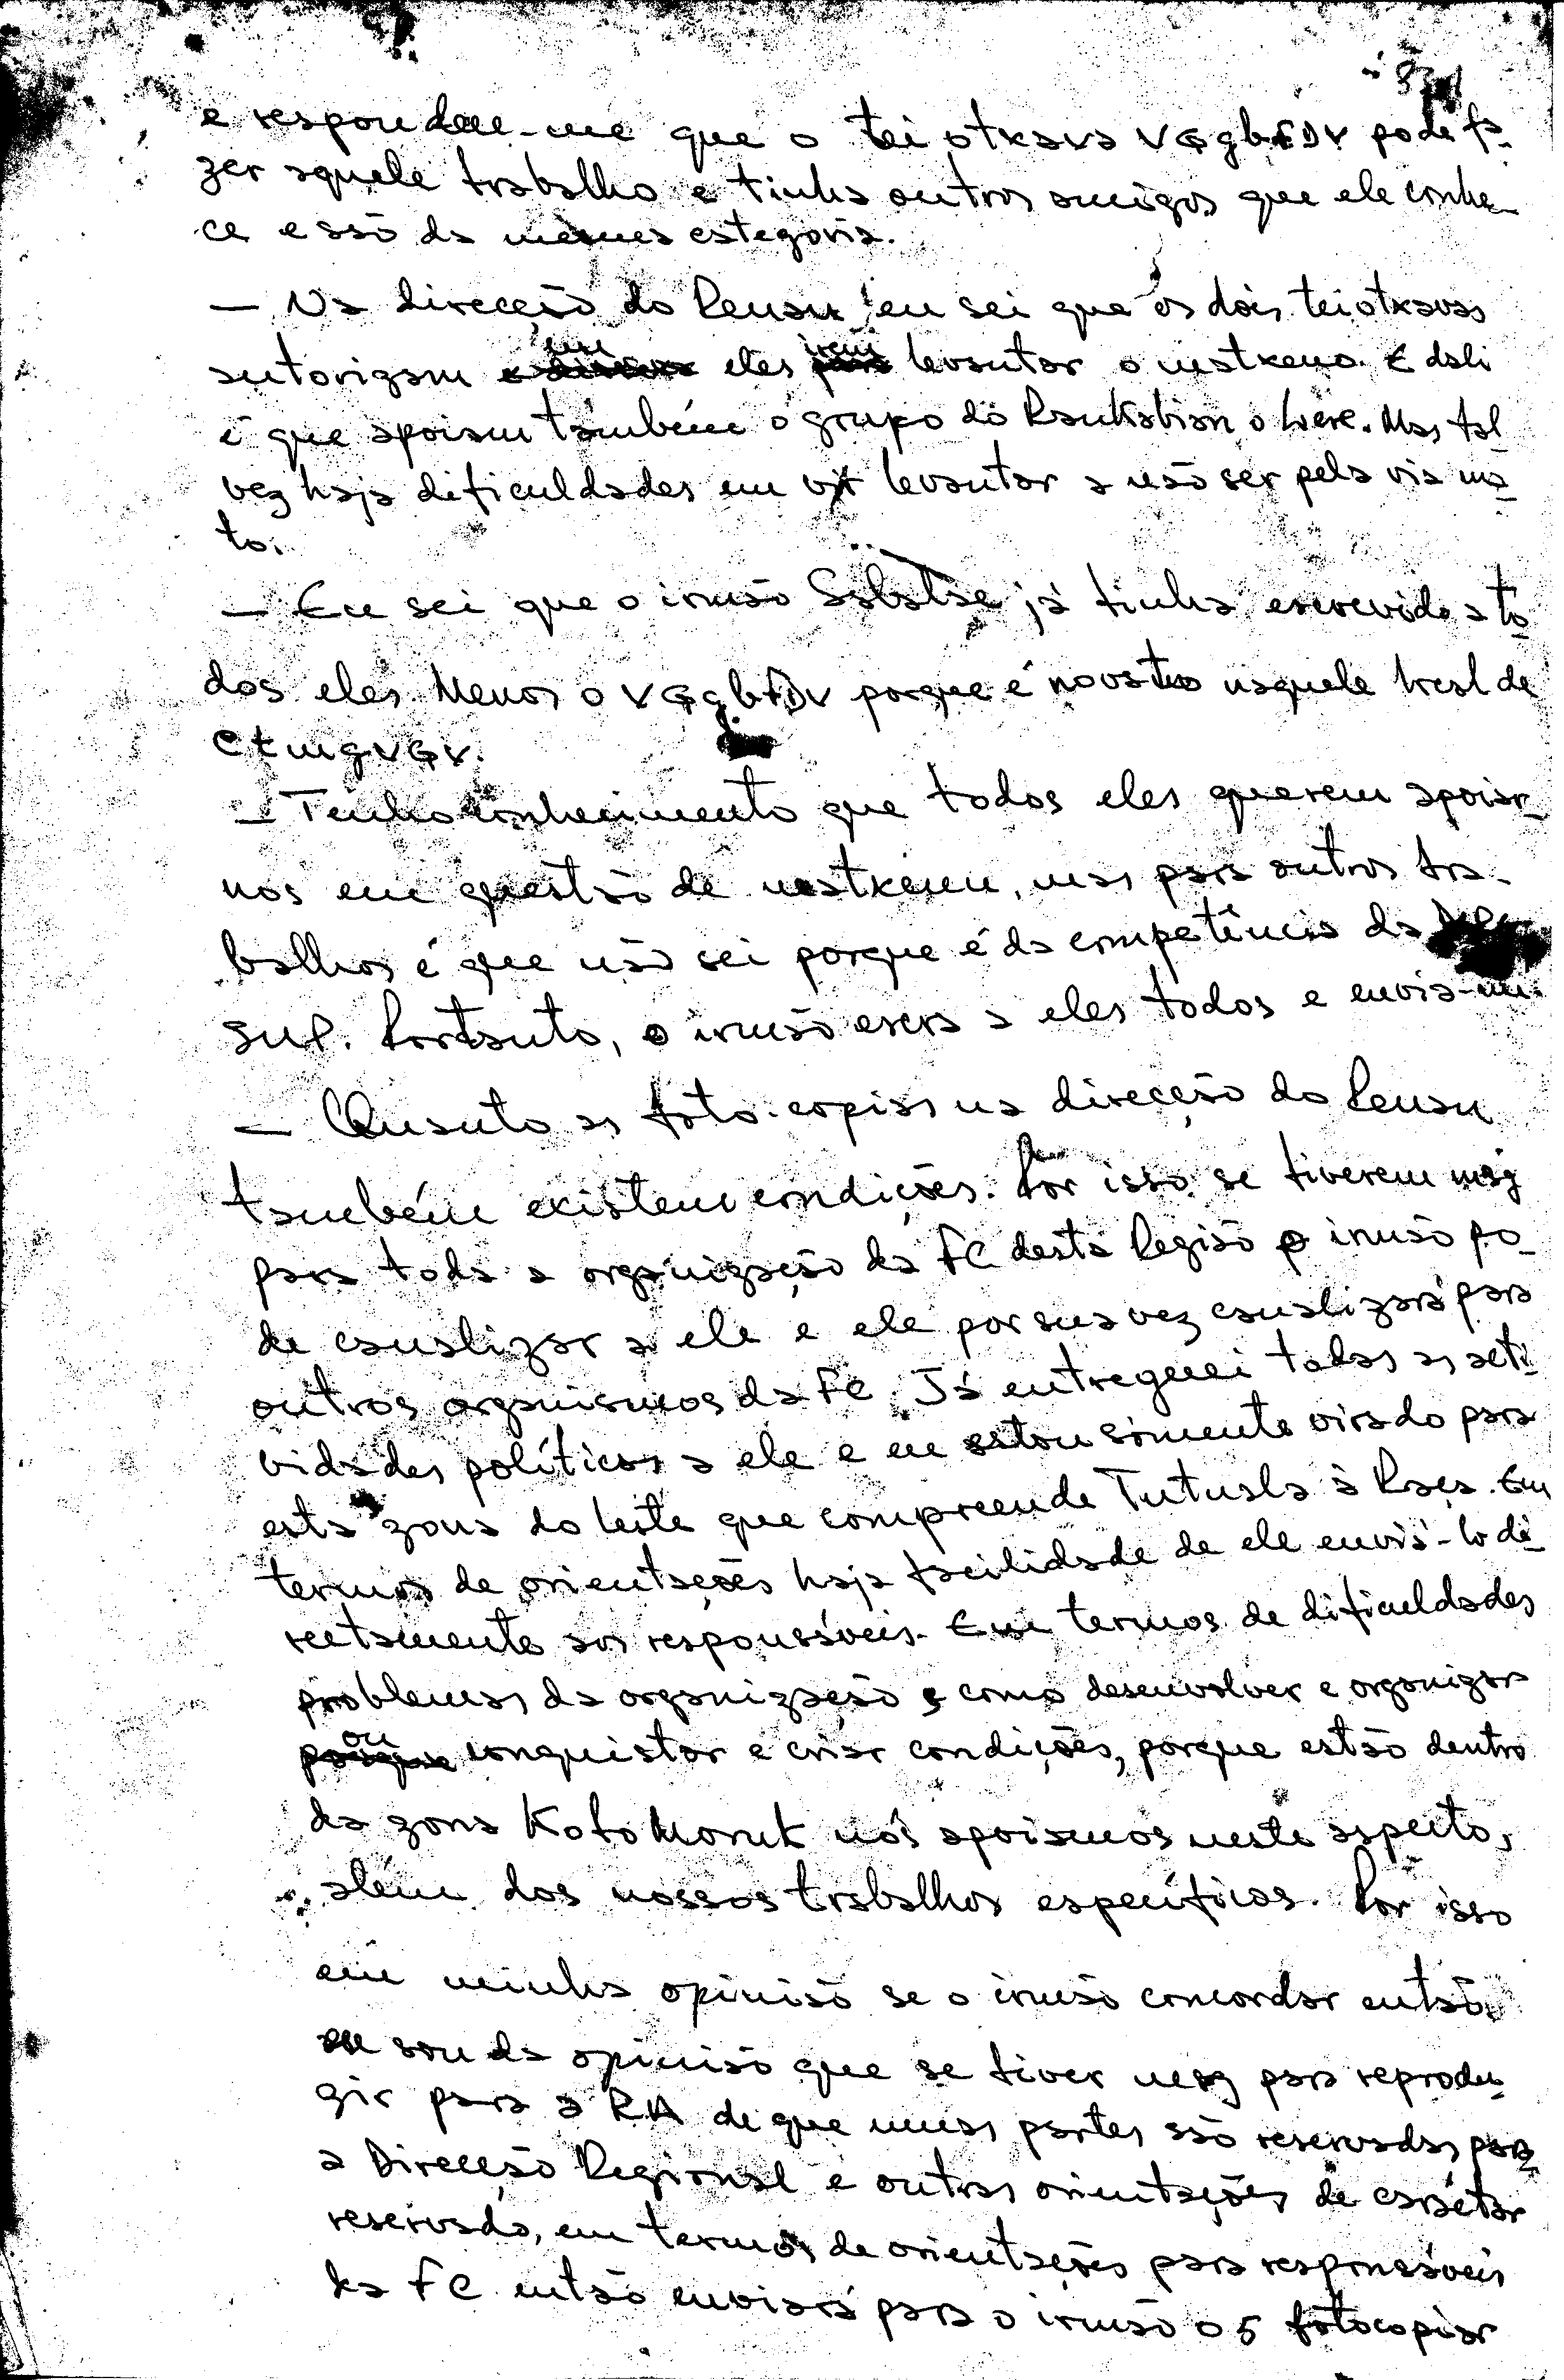 e respondeu-me que o teiotxava VGgbFDV pode fa-
zer aquele trabalho e tinha outros amigos que ele conhe-
ce e são da mesma categoria.
— Na direcção do Renan eu sei que os dois teiotxavas
autorizam em eles irem levantar o mstxemo. E dali
é que apoiam também o grupo do Rankabian o Lere. Mas tal-
vez haja dificuldades em vir levantar a não ser pela via ma-
to.
— Eu sei que o irmão Sabalae já tinha escrevido a to-
dos eles. Menos o VGgbFDV porque é novato naquele local de
CtmgVGV.
— Tenho conhecimento que todos eles querem apoiar-
nos em questão de mstxemo, mas para outros tra-
balhos é que não sei porque é da competência da
sup. Portanto, o irmão escra a eles todos e envia-me.
— Quanto as foto-copias na direcção do Renan
também existem condições. Por isso se tiverem msg
para toda a organização da FC desta Região o irmão po-
de canalizar a ele e ele por sua vez canalizará para
outros organismos da FC. Já entreguei todas as acti-
vidades políticas a ele e eu estou somente virado para
esta zona do leste que compreende Tutuala à Laga. Em
termos de orientações haja facilidade de ele enviá-lo di-
rectamente aos responsáveis. Em termos de dificuldades
problemas da organização e como desenvolver e organizar
ou conquistar e criar condições, porque estão dentro
da zona Koto Moruk nós apoiamos neste aspecto,
além dos nossos trabalhos específicos. Por isso
em minha opinião se o irmão concordar então
eu sou da opinião que se tiver msg para reprodu-
zir para a RA de que umas partes são reservadas para
a Direcção Regional e outras orientações de carácter
reservado, em termos de orientações para responsáveis
da FC então enviará para o irmão o 5 fotocopiar